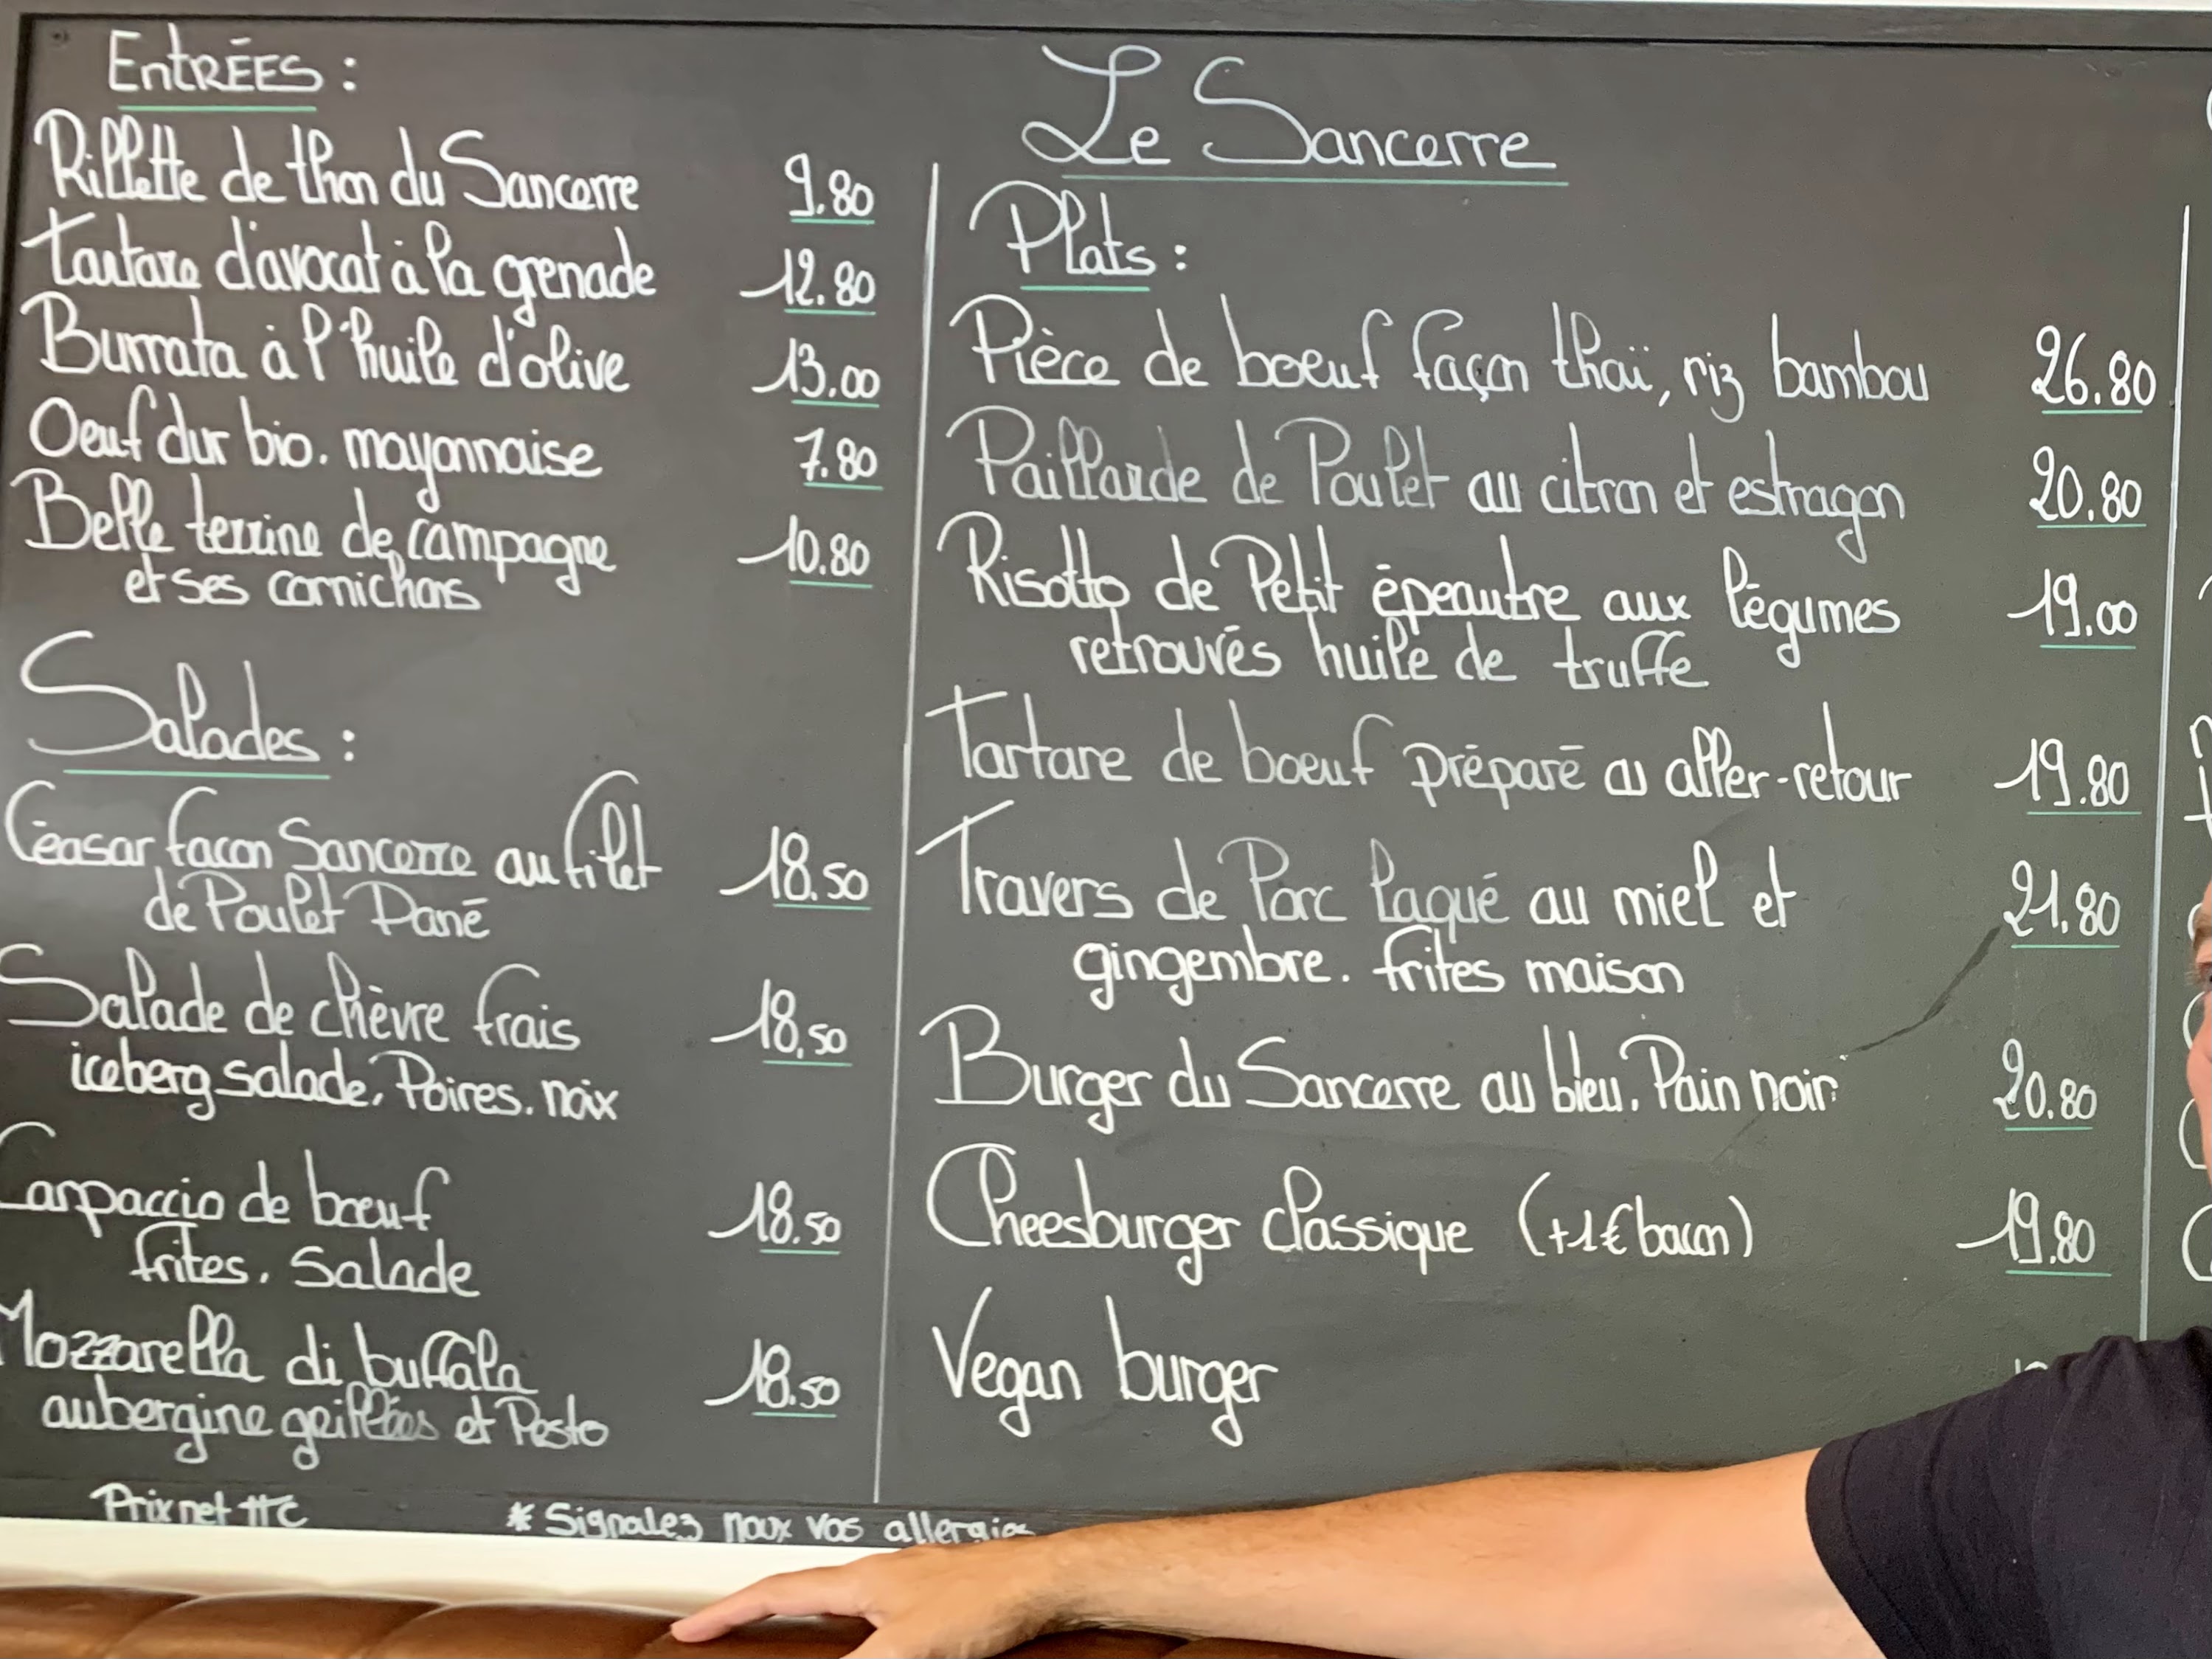 EntRÉES :
Rillette de thon du Sancerre 9.80
Tartare d'avocat à la grenade 12.80
Burrata à l'huile d'olive 13.00
Oeuf dur bio. mayonnaise 7.80
Belle terrine de campagne 10.80
et ses cornichons
Salades :
Céasar façon Sancerre au filet 18.50
de Poulet Pané
Salade de chèvre frais 18.50
iceberg salade, Poires. noix
Carpaccio de bœuf 18.50
frites. Salade
Mozzarella di buffala 18.50
aubergine grillées et Pesto
Prix net TTC
* Signalez noux vos allergies
Le Sancerre
Plats :
Pièce de boeuf façon thaï, riz bambou 26.80
Paillarde de Poulet au citron et estragon 20.80
Risotto de Petit épeautre aux légumes 19.00
retrouvés huile de truffe
Tartare de boeuf préparé ou aller-retour 19.80
Travers de Porc laqué au miel et 21.80
gingembre. frites maison
Burger du Sancerre au bleu. Pain noir 20.80
Cheesburger classique (+1€ bacon) 19.80
Vegan burger